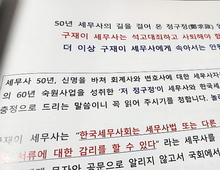 50년 세무사의 길을 걸어 온 정구정(鄭求政)
구재이 세무사는 석고대죄하고 사퇴해야 합
더 이상 구재이 세무사에게 속아서는 안됩
세무사 50년, 신명을 바쳐 회계사와 변호사에 대한 세무사자
의 60년 숙원사업을 성취한 '저 정구정'이 세무사와 한국세무
충정으로 드리는 말씀이니 꼭 읽어 주시기를 청합니다.
구재이 세무사는 "한국세무사회는 세무사법 또는 다른
서류에 대한 감리를 할 수 있다" 라는 세무사를
문자와 공문으로 알리지 않고서 국회에서